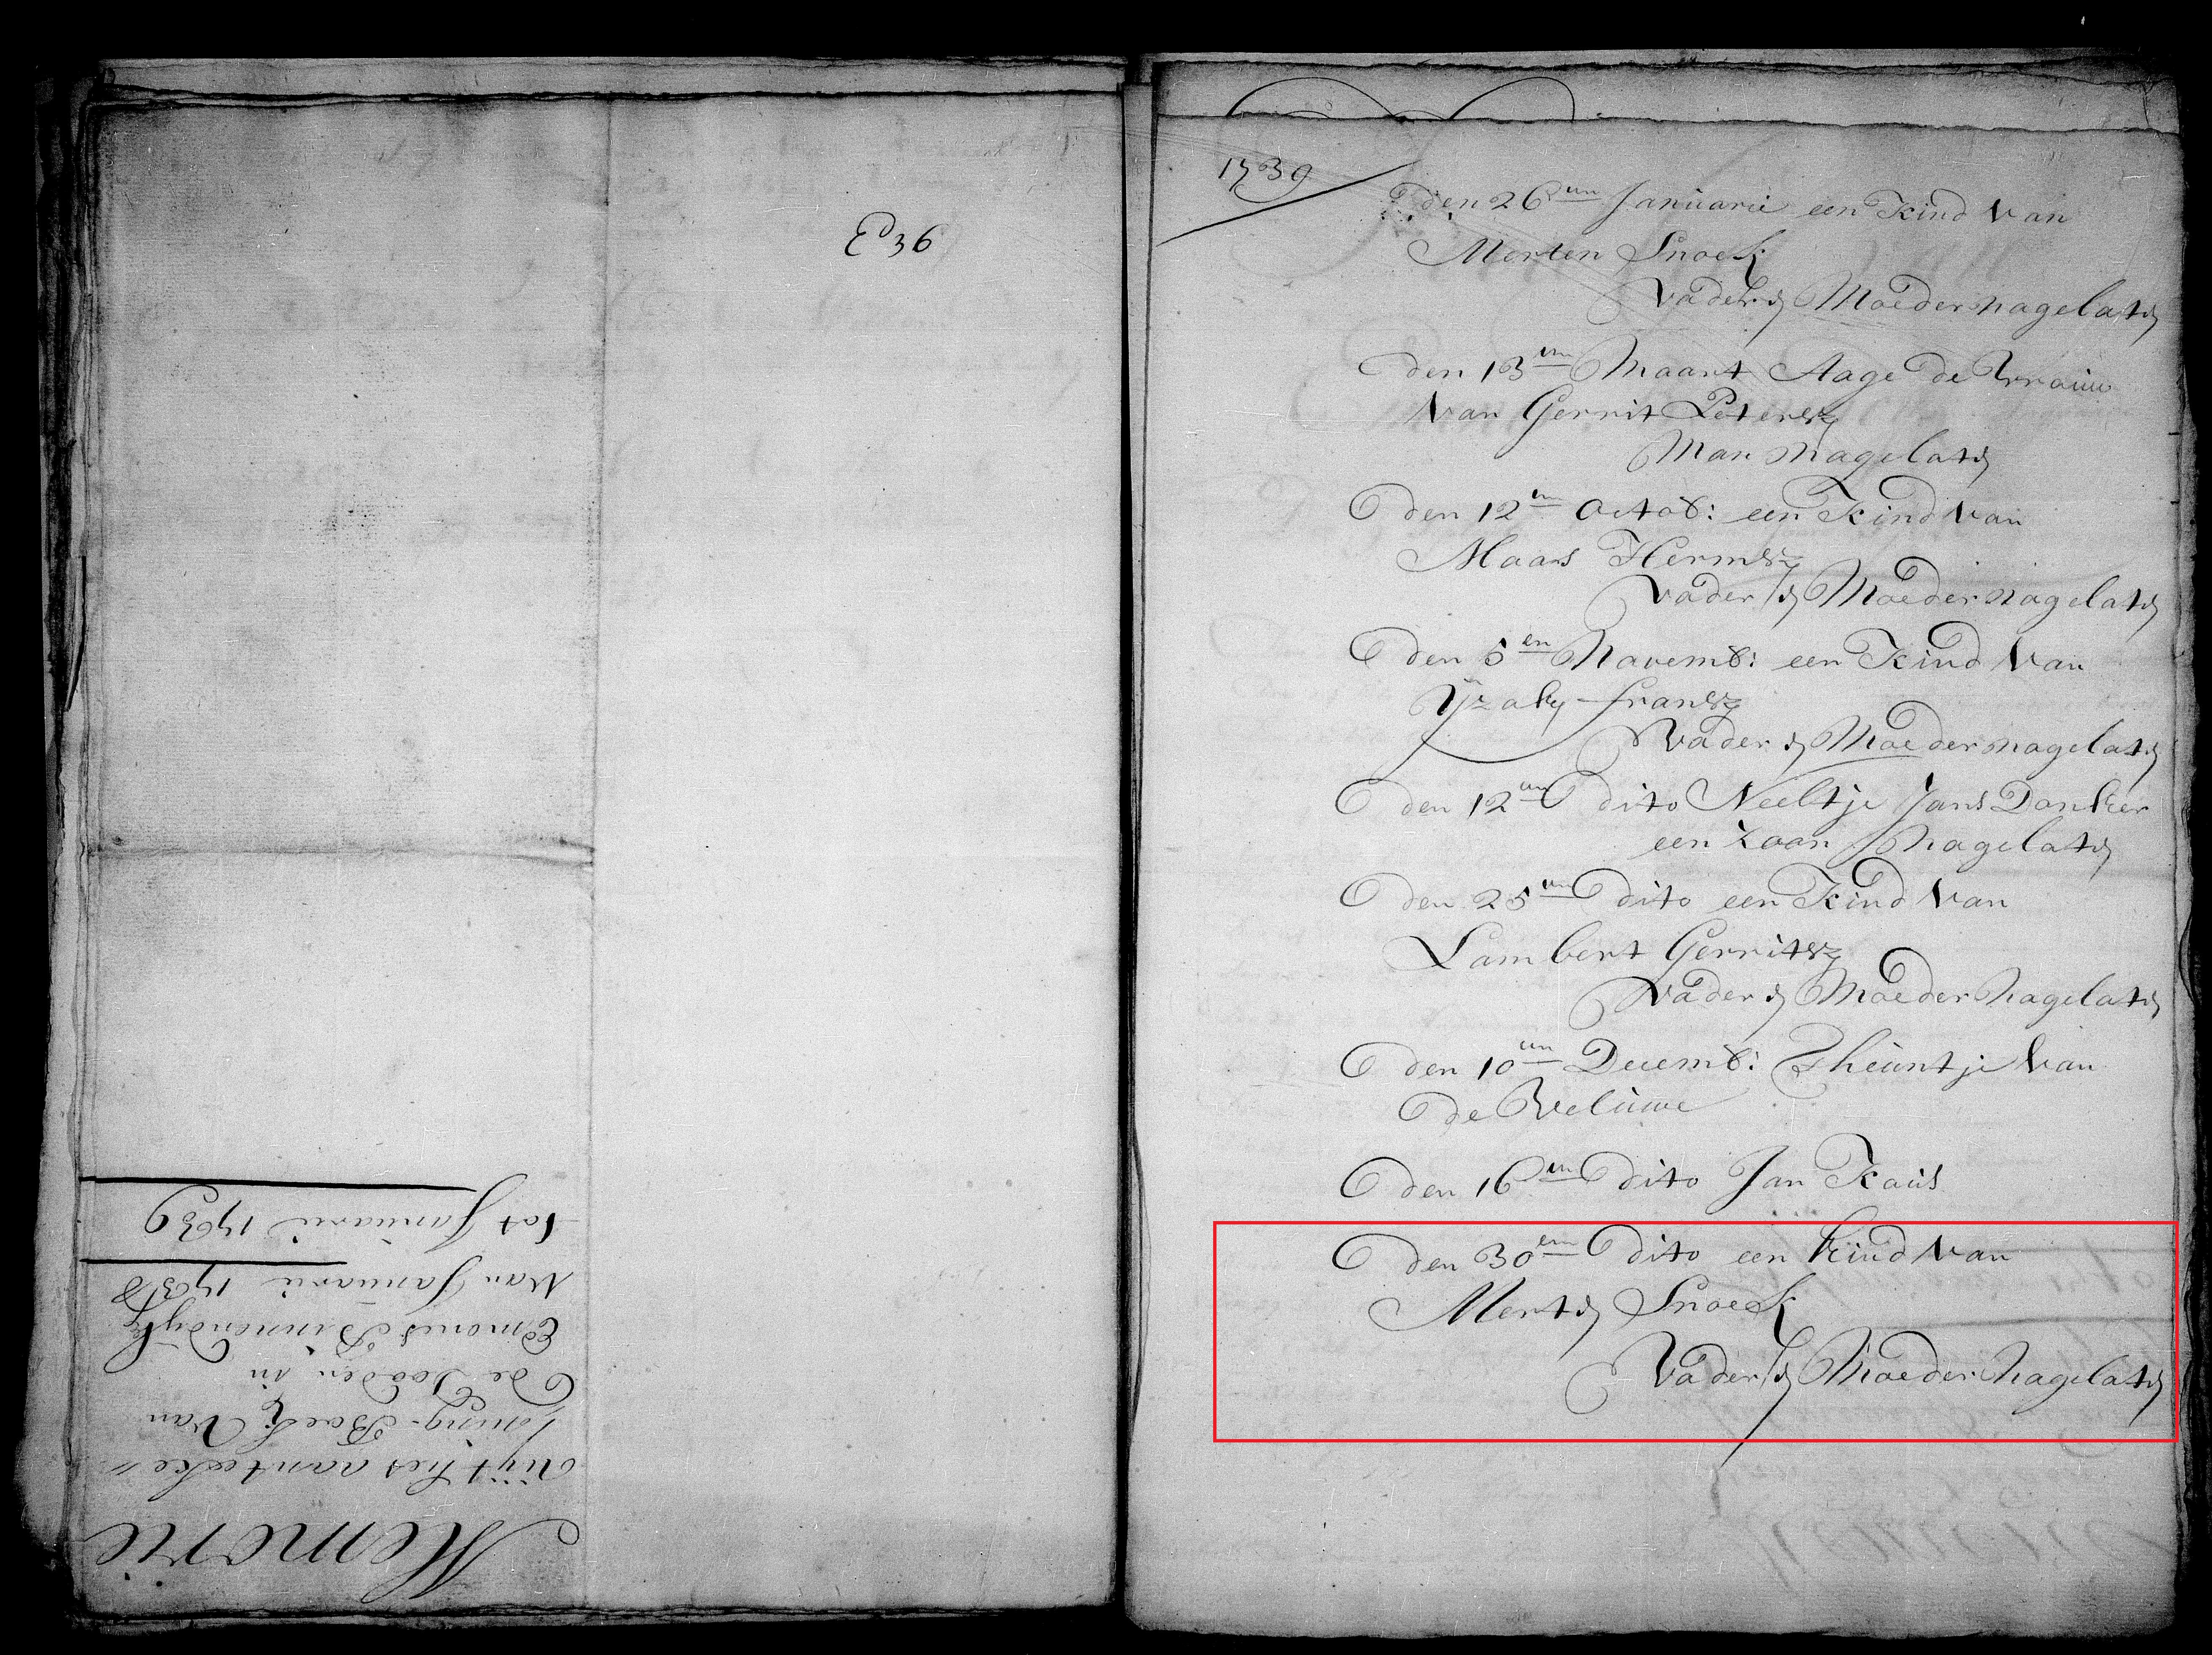 Ed 36
Memorie
Uijt het aanteeke„
ning-Boek Van
de Dooden in
Emons Binnendijk
Van Januarii 1738
tot Januarii 1739
1739
den 26en Januarii een Kind Van
Merten Snoek
Vader en Moeder nagelaten
den 13en Maart Aage de Vrouw
Van Gerrit Petersz
Man Nagelaten
den 12en Octob: een Kind Van
Maas Hermsz
Vader en Moeder Nagelaten
den 5en Novemb: een Kind Van
Yzaky fransz
Vader en Moeder nagelaten
den 12en dito Neeltje Jans Danker
een Zoon Nagelaten
den 25en dito een Kind Van
Lambert Gerritsz
Vader en Moeder Nagelaten
den 10en Decemb: Theuntje Van
de Veluwe
den 16en dito Jan Kaus
den 30en dito een Kind Van
Merten Snoek
Vader en Moeder Nagelaten